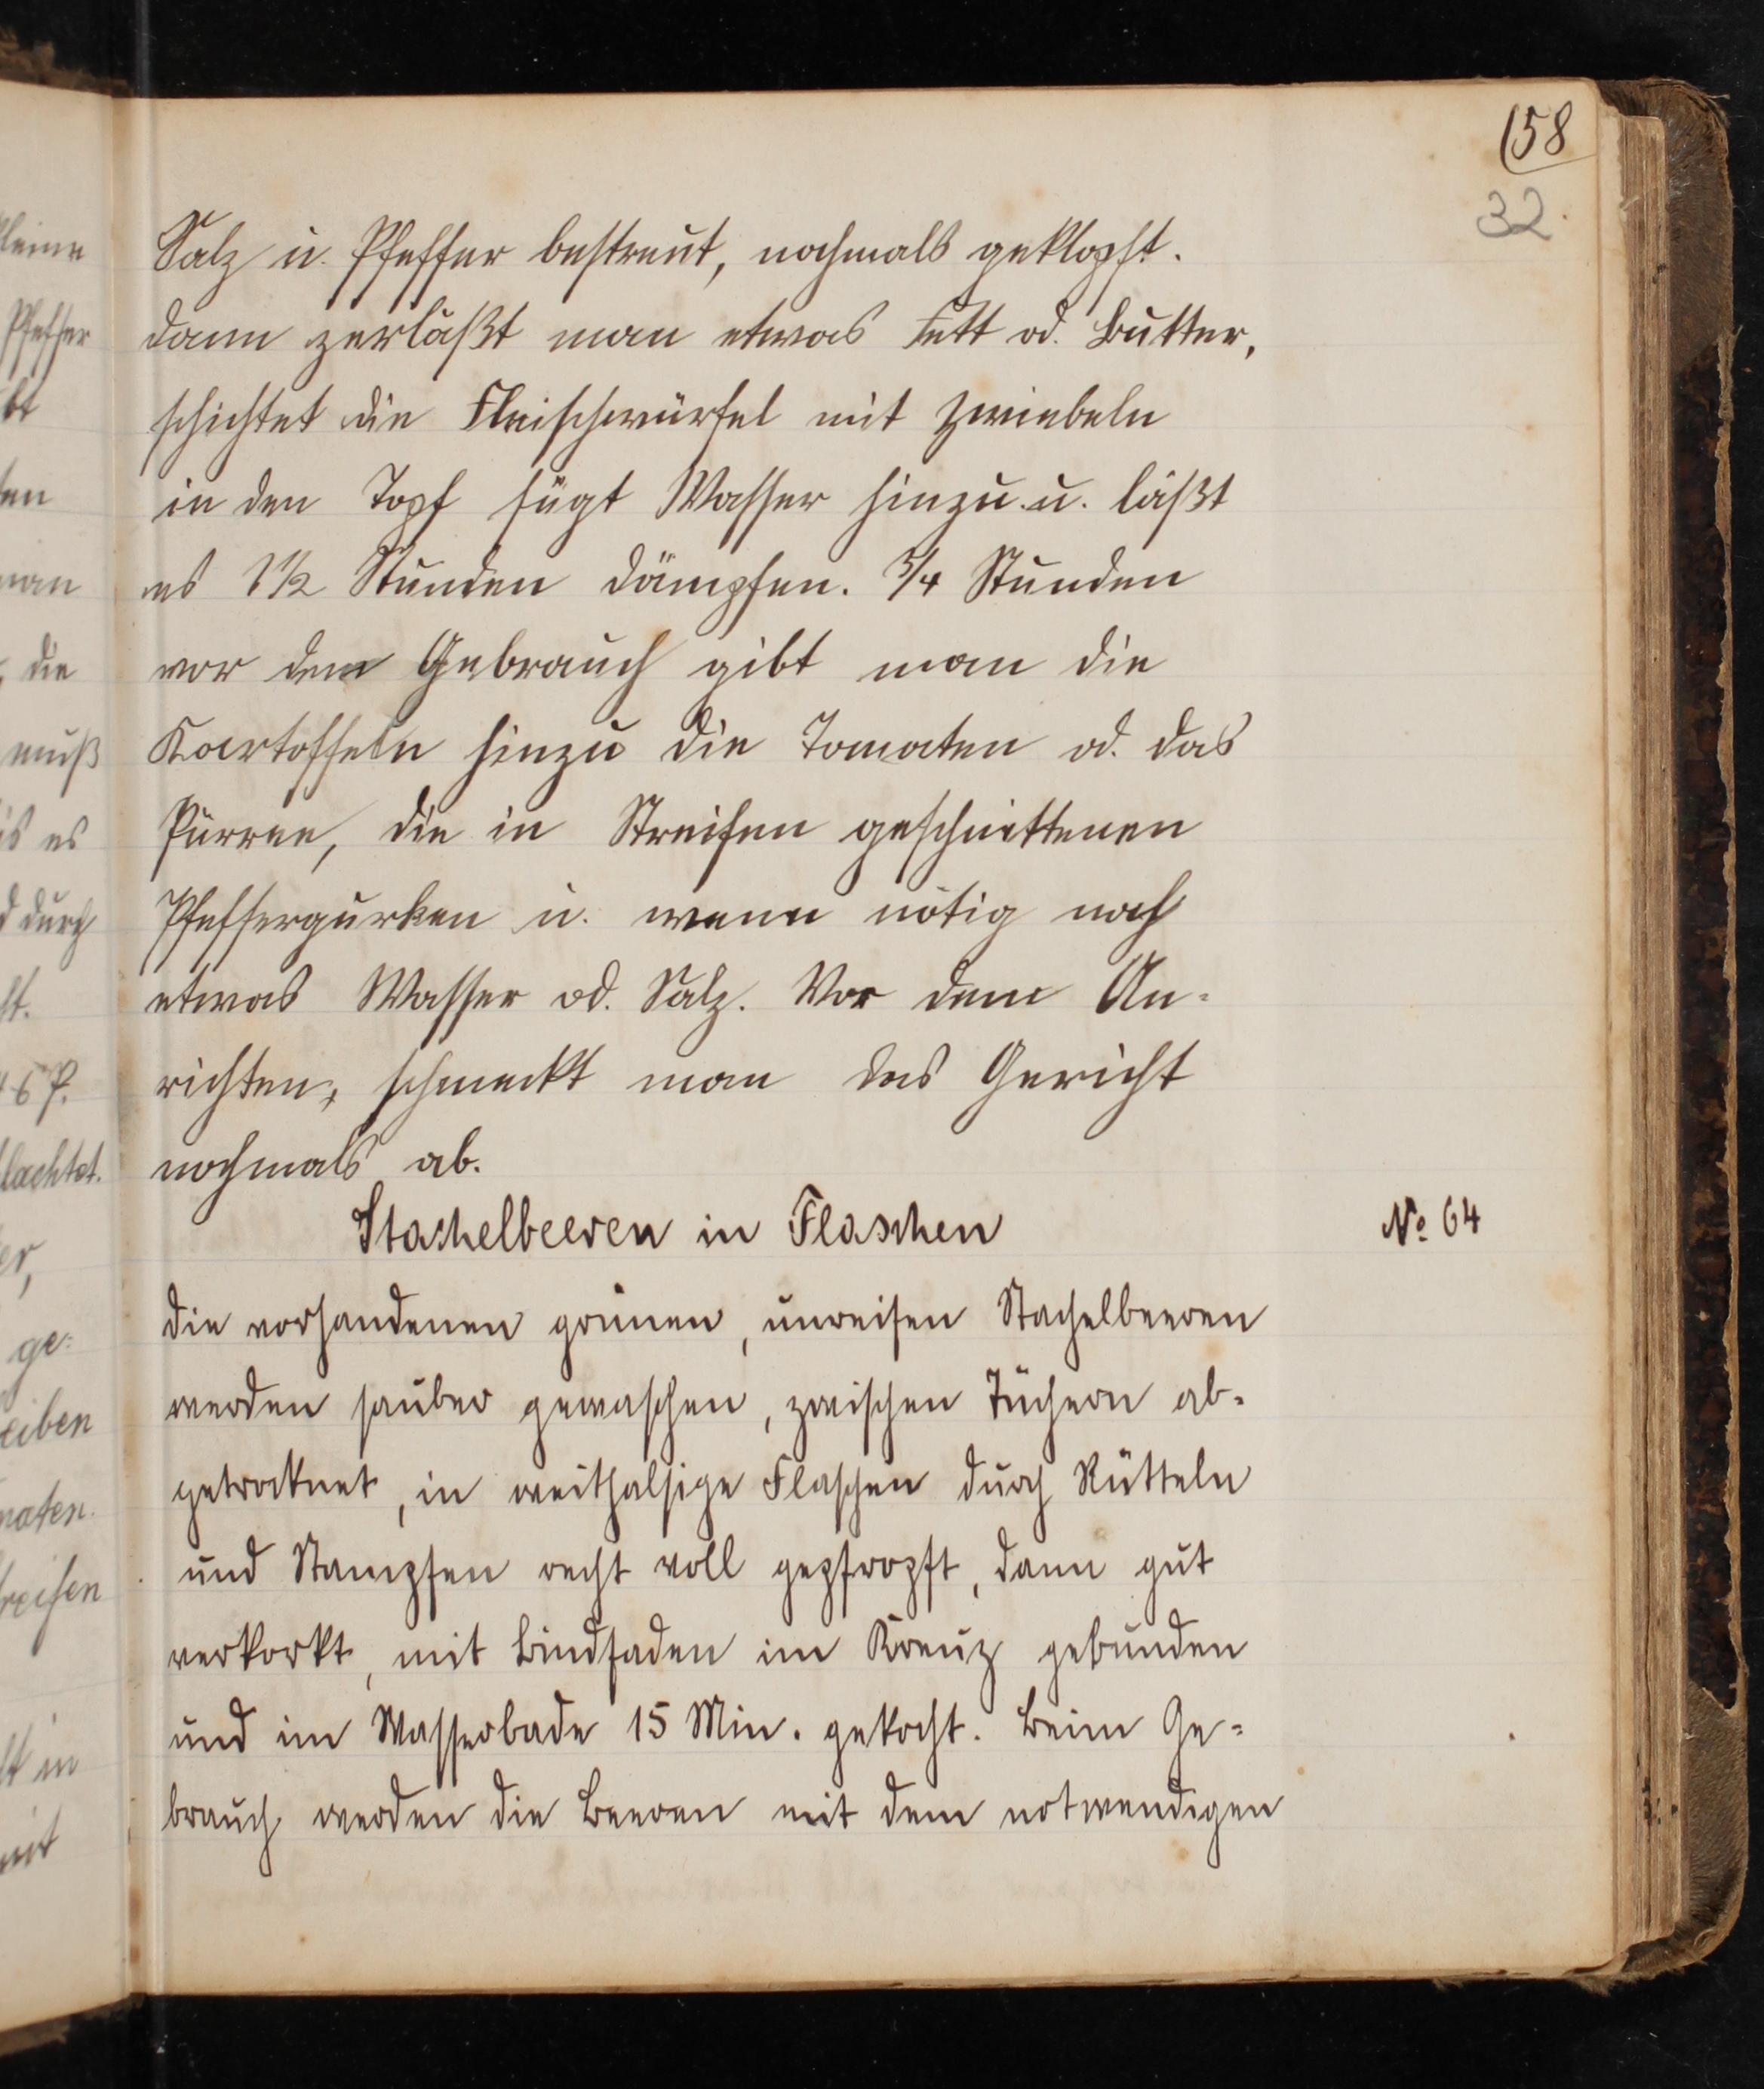 158
32.
Salz u. Pfeffer bestreut, nochmals geklopft.
dann zerläßt man etwas Fett od. Butter,
schichtet die Fleischwürfel mit Zwiebeln
in den Topf fügt Wasser hinzu u. läßt
es 1½ Stunden dämpfen. ¾ Stunden
vor dem Gebrauch gibt man die
Kartoffeln hinzu die Tomaten od. das
Pürree, die in Streifen geschnittenen
Pfeffergurken u. wenn nötig noch
etwas Wasser od. Salz. Vor dem An-
richten, schmeckt man das Gericht
nochmals ab.
Stachelbeeren in Flaschen
No 64
die vorhandenen grünen, unreifen Stachelbeeren
werden sauber gewaschen, zwischen Tüchern ab-
getrocknet, in weithalsige Flaschen durch Rütteln
und Stampfen recht voll gepfropft, dann gut
verkorkt, mit Bindfaden im Kreuz gebunden
und im Wasserbade 15 Min. gekocht. Beim Ge-
brauch werden die Beeren mit dem notwendigen